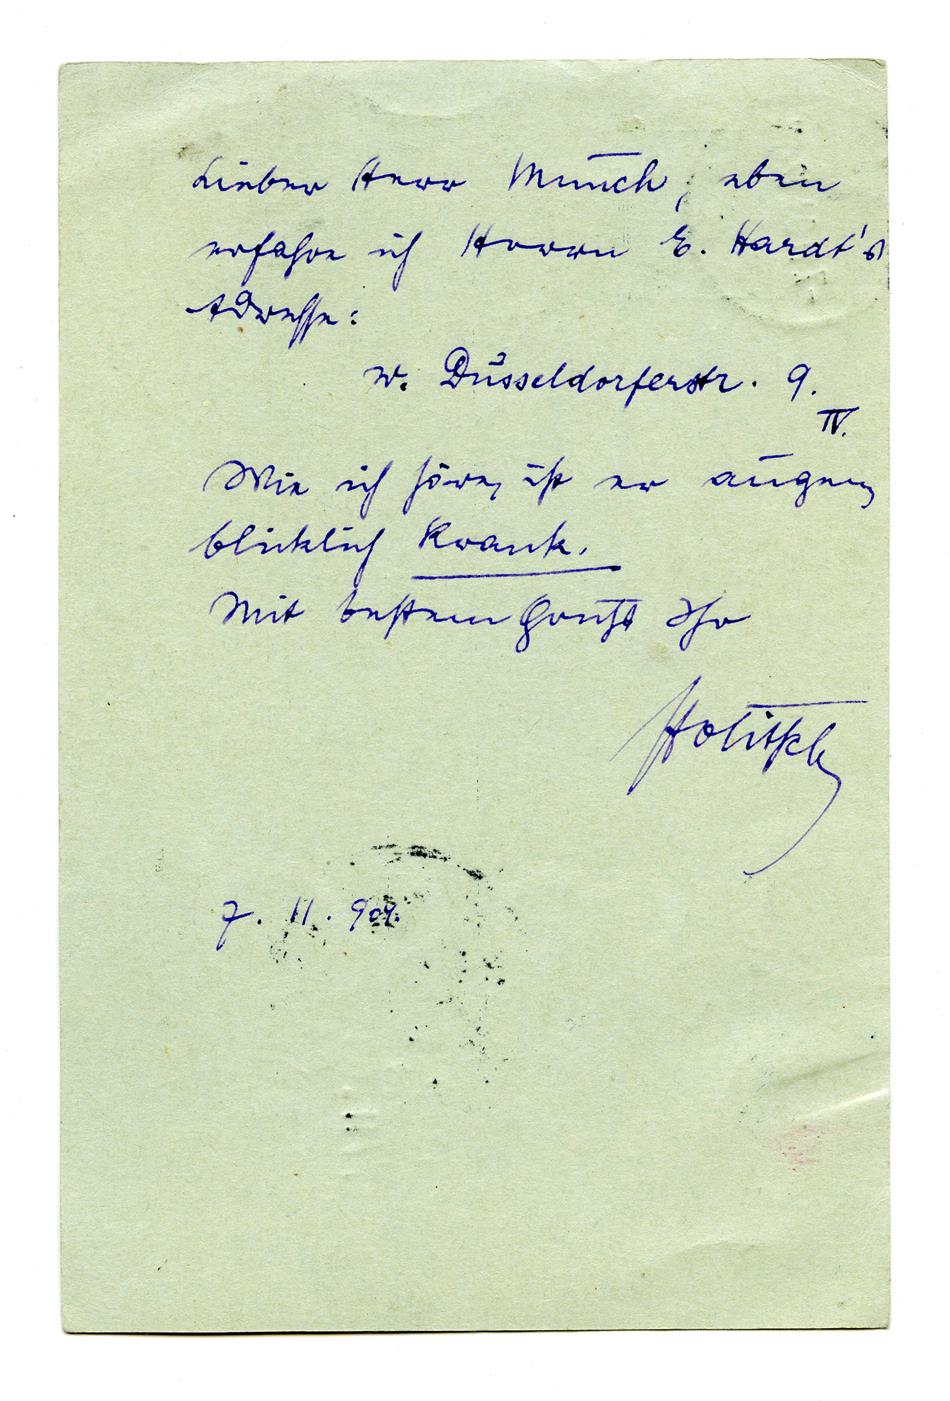 Lieber Herr Munch, eben
erfahre ich Herrn E. Hardt's
Adresse:
W. Düsseldorferstr. 9.
IV.
Wie ich höre, ist er augen-
blicklich krank.
Mit bestem Gruß Ihr
Holitscher
7. 11. 904.